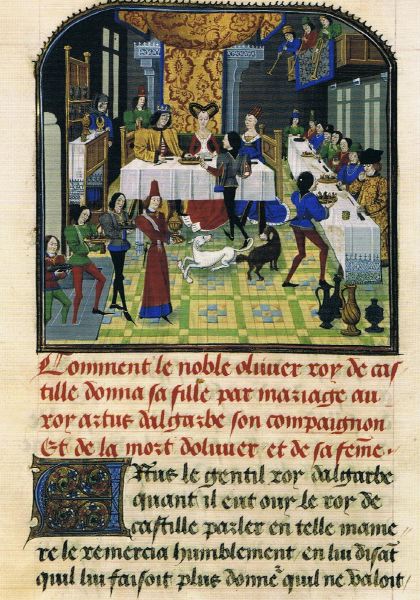 Comment le noble oliuier roy de cas-
tille donna sa fille par mariage au
roy artus dalgarbe son compaignon
Et de la mort doliuier et de sa femme.
Artus le gentil roy dalgarbe
quant il eut ouy le roy de
castille parler en telle manie-
re le remercia humblement en lui disãt
quil lui faisoit plus donne² quil ne valoit